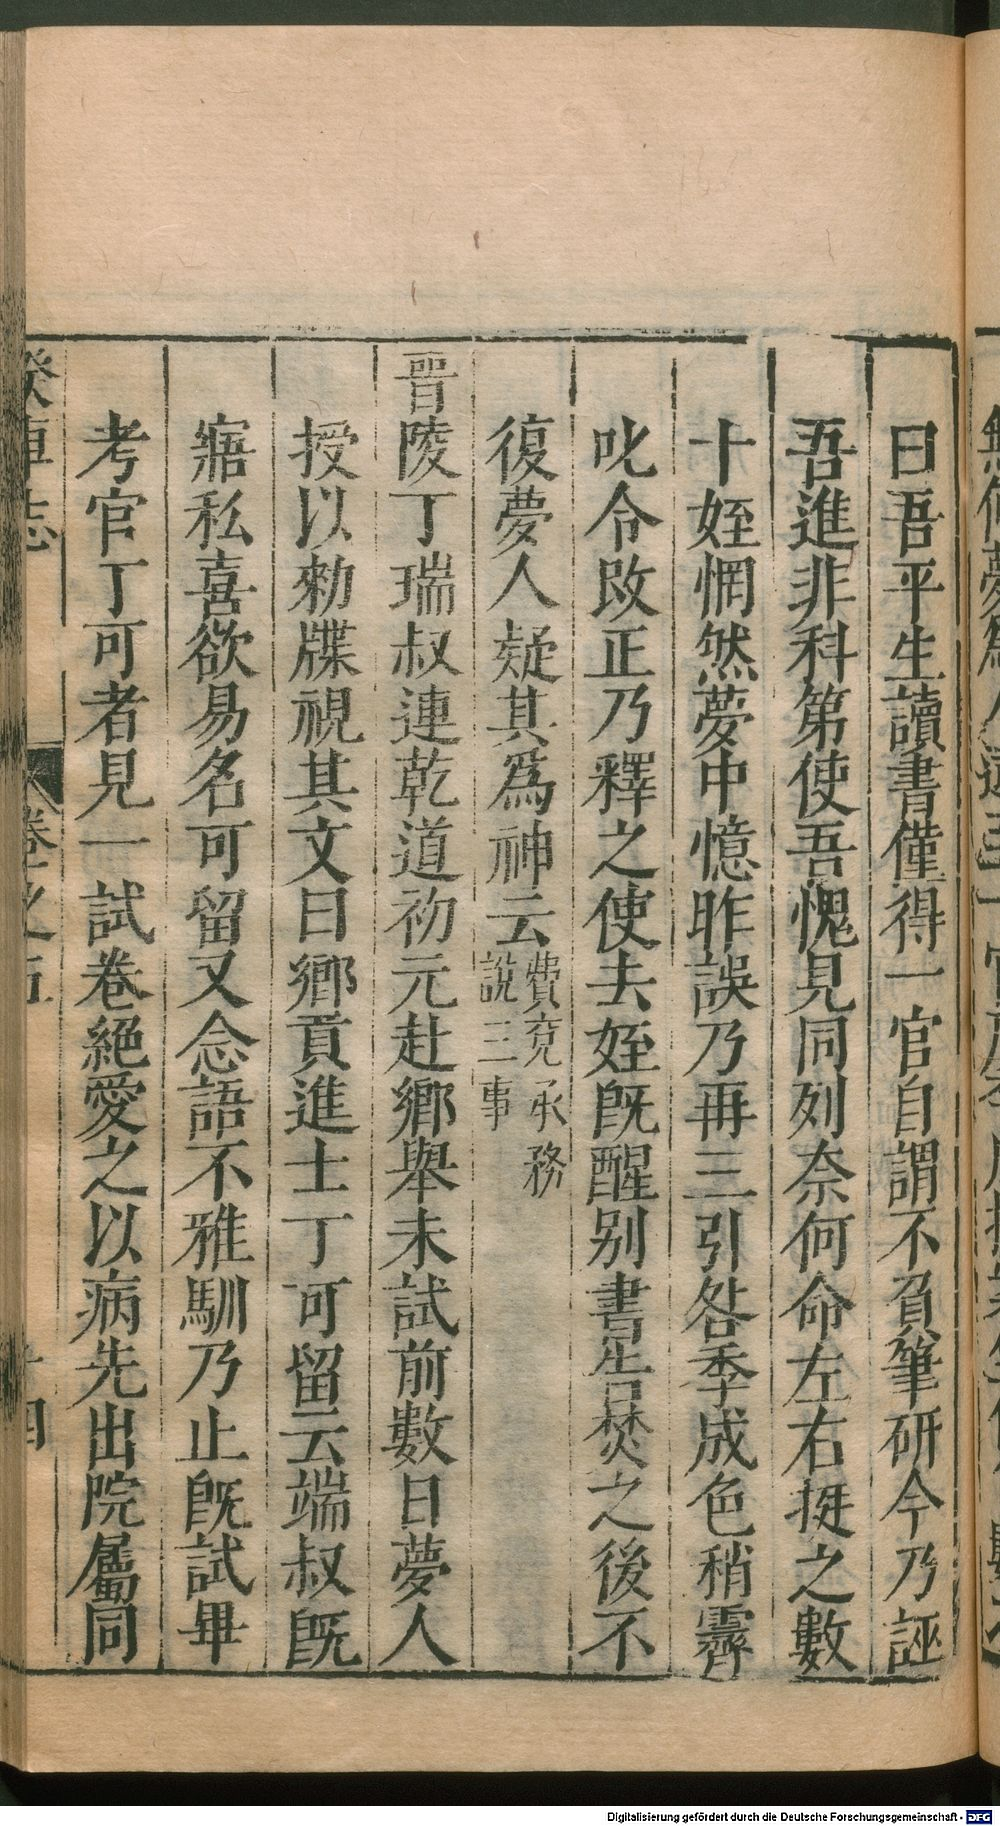 曰吾平生讀書僅得一官自謂不負筆研今乃誣
吾進非科第使吾愧見同列奈何命左右挺之數
十姪惘然夢中憶昨誤乃再三引咎季成色稍霽
叱令改正乃釋之使去姪既醒別書告焚之後不
復夢人疑其爲神云費兗承務說三事
晋陵丁瑞叔連乾道初元赴鄉舉未試前數日夢人
授以勑牒視其文曰鄉貢進士丁可留云端叔既
寤私喜欲易名可留又念語不雅馴乃止既試畢
考官丁可者見一試卷絕愛之以病先出院屬同
睽車志 卷之五 十四
Digitalisierung gefördert durch die Deutsche Forschungsgemeinschaft - DFG